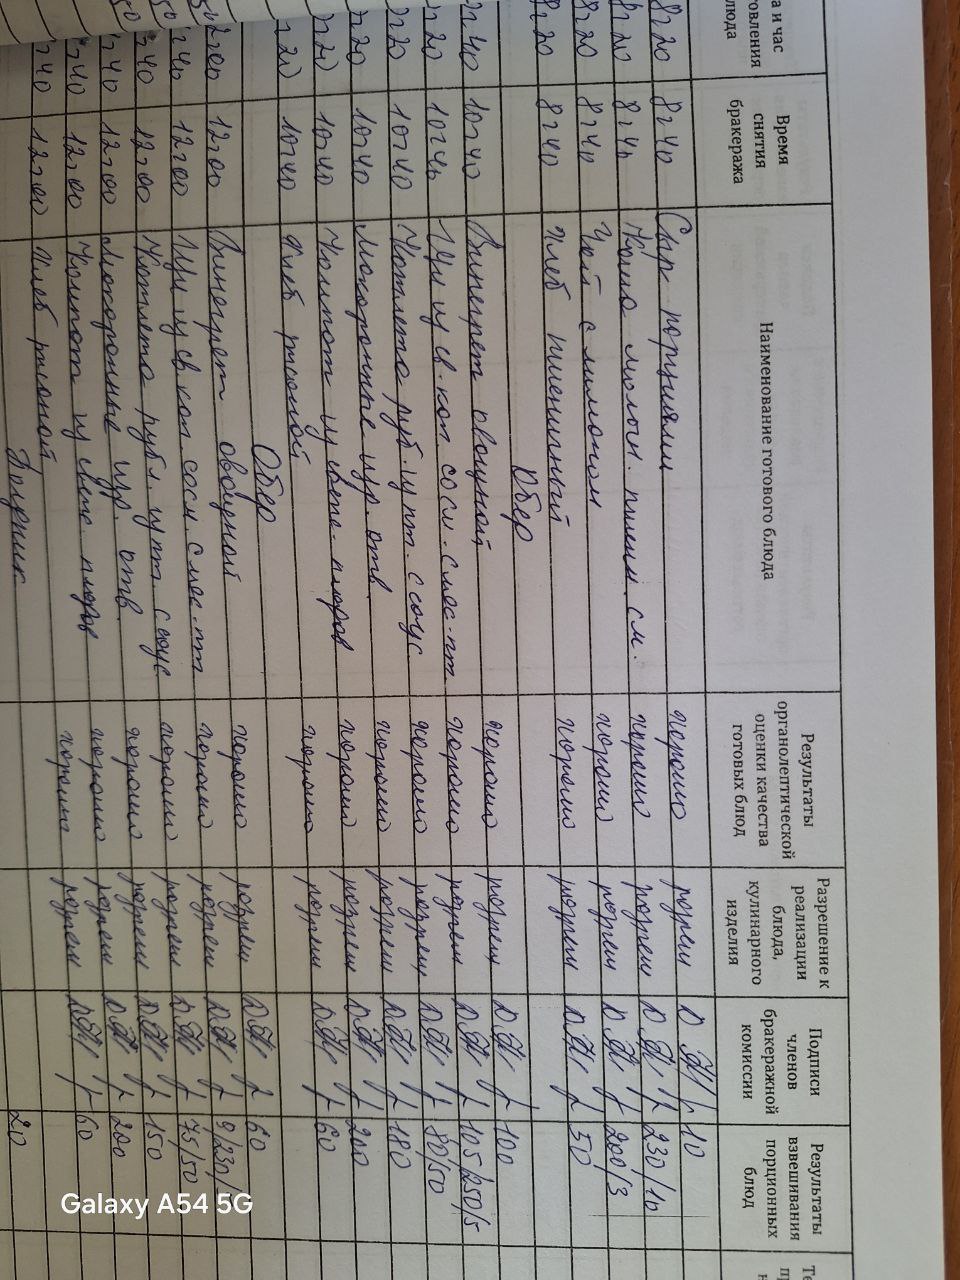 а и час
товления
блюда
Время
снятия
бракеража
Наименование готового блюда
Результаты
органолептической
оценки качества
готовых блюд
Разрешение к
реализации
блюда,
кулинарного
изделия
Подписи
членов
бракеражной
комиссии
Результаты
взвешивания
порционных
блюд
8г20 8г40 Сыр порциями хорошо разреш 10
8г20 8г40 Каша молочн. пшен. с м. хорошо разреш 230/10
8г20 8г40 Чай с лимоном хорошо разреш 200/3
8г20 8г40 Хлеб пшеничный хорошо разреш 50
Обед
10г40 Винегрет овощной хорошо разреш 100
10г40 Щи из св. кап. со см. с мяс. пт. хорошо разреш 105/250/5
10г40 Котлета руб. из пт. с соус хорошо разреш 80/50
10г40 Макаронные изр. отв. хорошо разреш 180
10г40 Компот из свеж. плодов хорошо разреш 200
10г40 Хлеб ржаной хорошо разреш 60
Обед
12г00 Винегрет овощной хорошо разреш 60
12г00 Щи из св кап. со см. с мяс. пт хорошо разреш
12г00 Котлета рубл. из пт. с соус хорошо разреш 75/50
12г00 Макаронные изр. отв. хорошо разреш 150
12г00 Компот из свеж. плодов хорошо разреш 200
12г00 Хлеб ржаной хорошо разреш 60
Полдник
20
Galaxy A54 5G